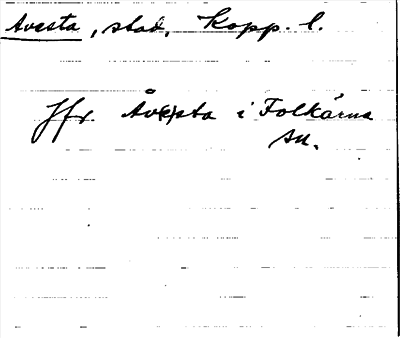 Avesta, stad, Kopp. l.
Jfr Åv(e)sta i Folkärna
sn.